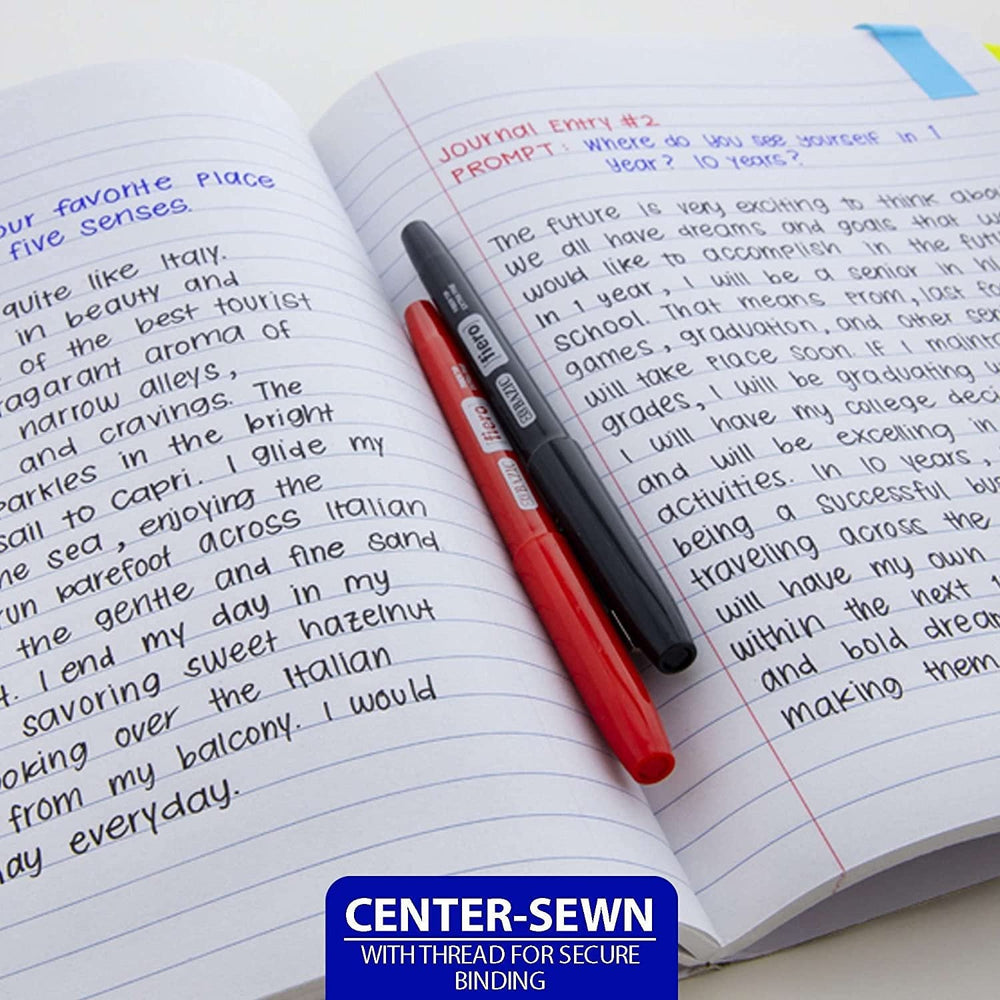 our favorite place
five senses.
quite like Italy.
in beauty and
of the best tourist
ragarant aroma of
narrow alleys,
and cravings. The
parkles in the bright
sail to Capri. I glide my
he sea, enjoying the
run barefoot across Italian
the gentle and fine sand
t. I end my day in my
savoring sweet hazelnut
ooking over the Italian
from my balcony. I would
ay everyday.
Journal Entry #2
PROMPT: Where do you see yourself in 1
year? 10 years?
The future is very exciting to think abou
we all have dreams and goals that w
would like to accomplish in the futur
In 1 year, I will be a senior in hi
school. That means prom, last fo
games, graduation, and other sen
will take place soon. If I maint
grades, I will be graduating w
I will have my college deci
and will be excelling in
activities. In 10 years,
being a successful bu
traveling across the
will have my own
within the next
and bold dream
making them
fiero
BAZIC
fiero
BAZIC
CENTER-SEWN
WITH THREAD FOR SECURE
BINDING